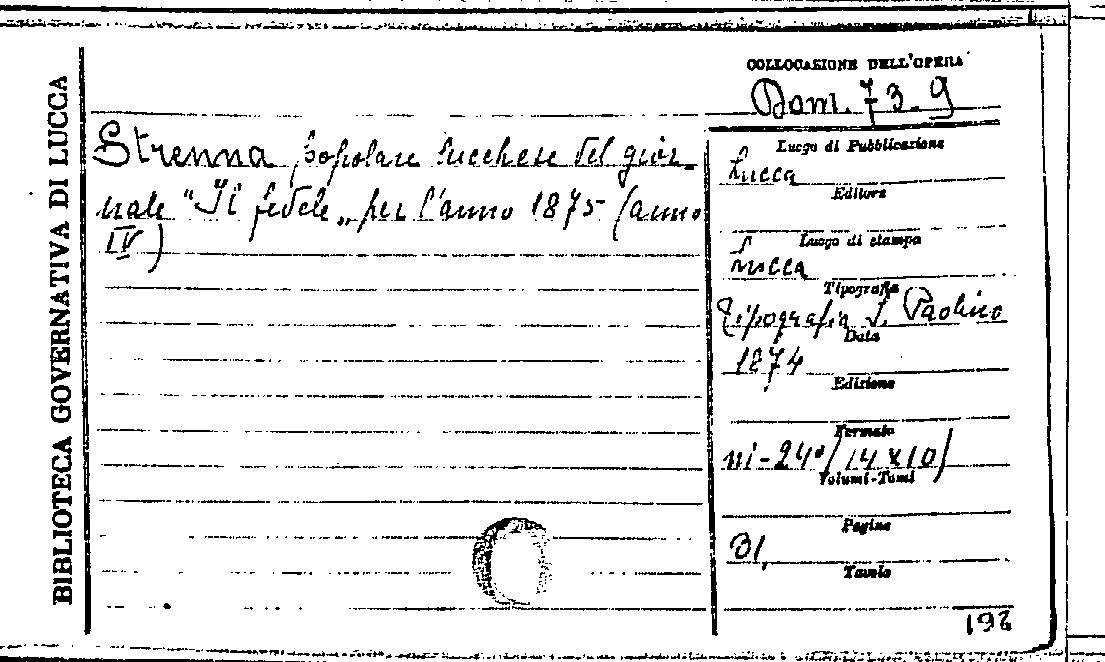 BIBLIOTECA GOVERNATIVA DI LUCCA
COLLOCAZIONE DELL'OPERA
Dom. 73. 9
Strenna popolare lucchese del gior-
nale "Il fedele" per l'anno 1875 (anno
IV)
Luogo di Pubblicazione
Lucca
Editore
Luogo di stampa
Lucca
Tipografia
Tipografia S. Paolino
Data
1874
Edizione
Formato
in-24° (14x10)
Volumi-Tomi
Pagine
31,
Tavole